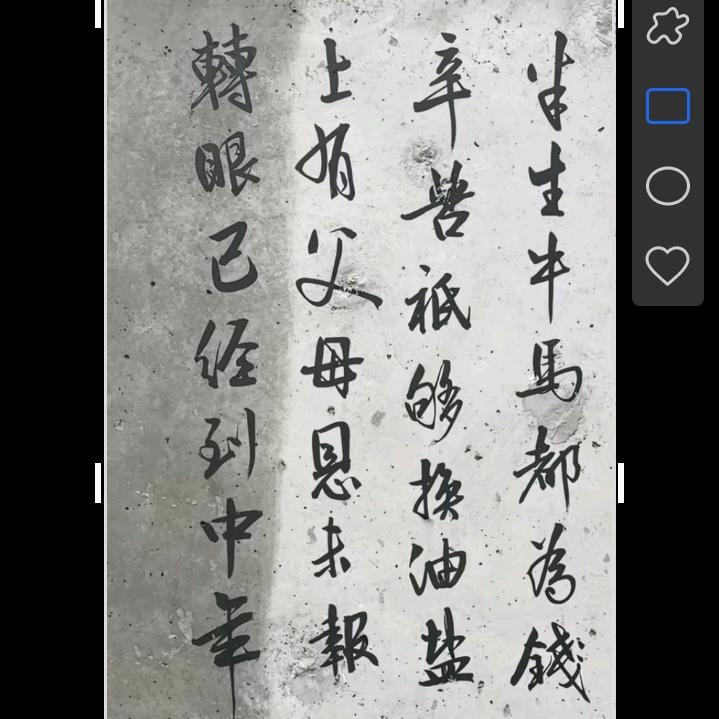 半生牛馬都為錢
辛苦祗够換油盐
上有父母恩未報
轉眼已经到中年